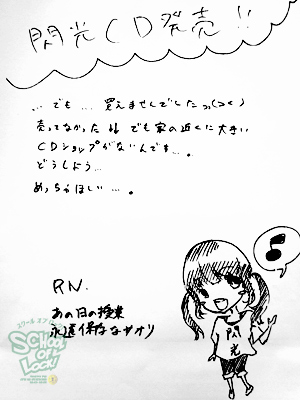 閃光CD発売!!
…でも…買えませんでした
売ってなかった↓↓ でも家の近くに大きい
CDショップがないんです…。
どうしよう…
めっちゃほしい…。
RN.
あの日の授業
永遠保存なサオリ
閃光
スクール オブ
SCHOOL
OF
LOCK!